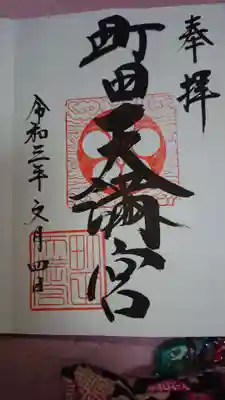 奉拝
町田天満宮
令和三年文月四日